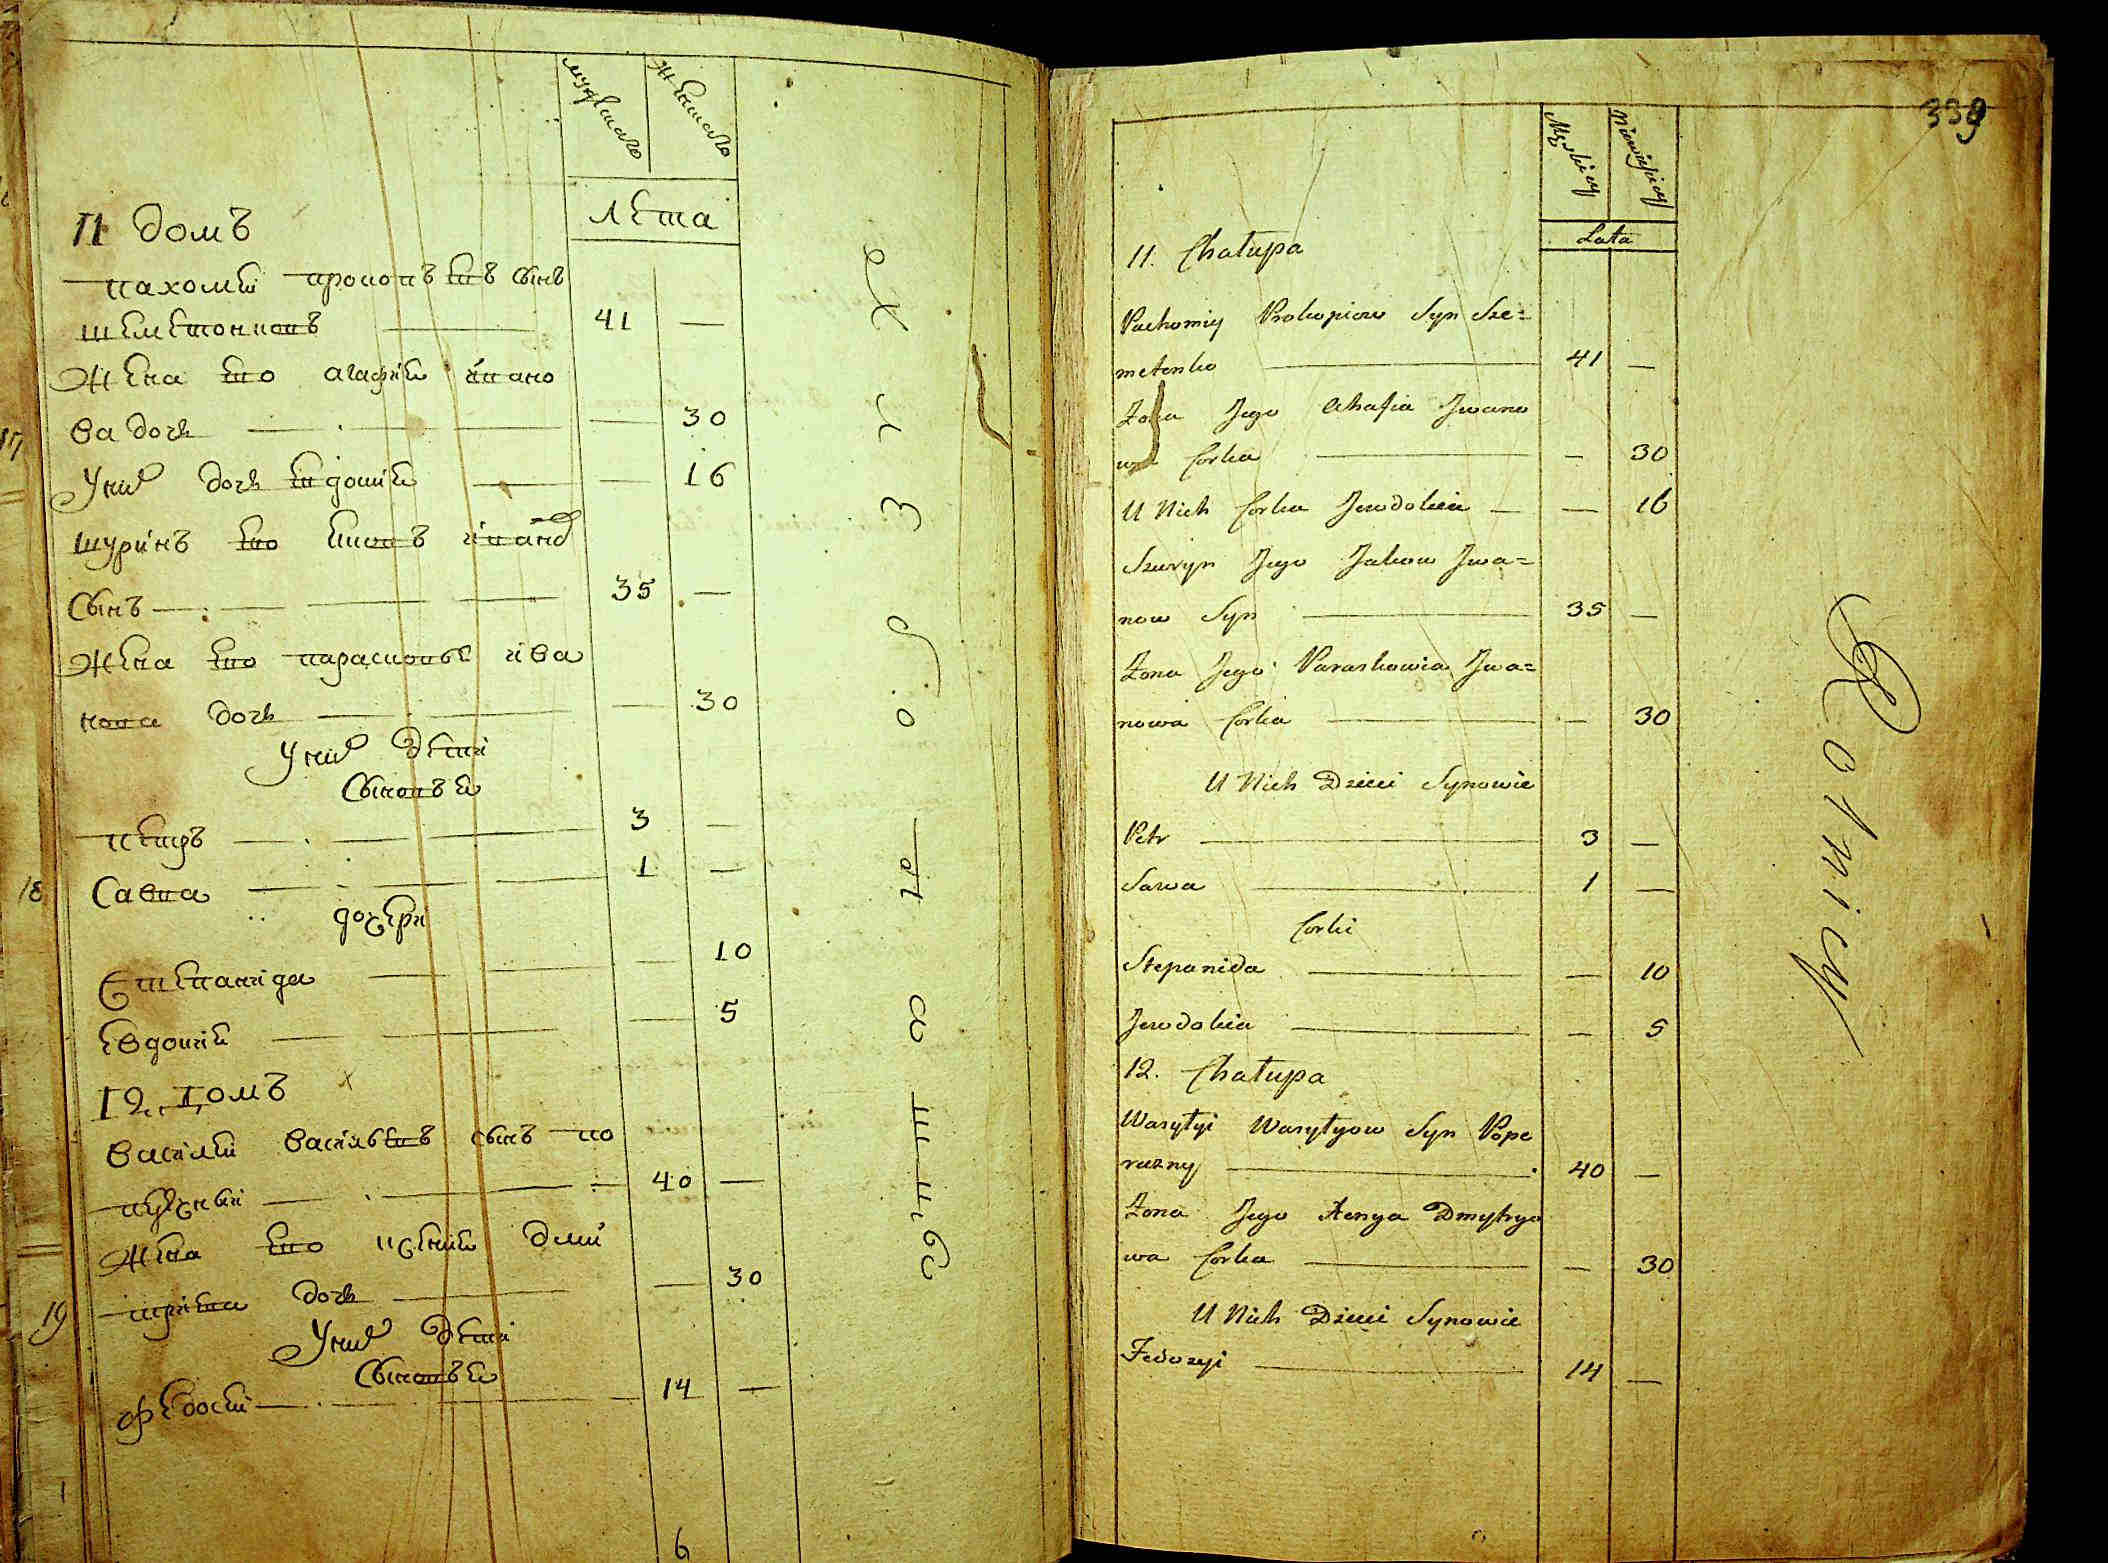 мужска
женска
лѣта
11 домъ
пахомїй прокопьевъ сынъ
шеметонковъ 41 —
Жена его агафїя ивано
ва дочь — 30
У них дочь евдокїя — 16
шуринъ его яковъ иванов
сынъ 35 —
Жена его парасковья ива
нова дочь — 30
У них дети
Сыновья
петръ 3 —
Савва 1 —
дочери
Степанида — 10
евдокия — 5
12 домъ
василий васильевъ сынъ по
40 —
Жена его дми
трїева дочь — 30
У них дети
Сыновья
федосей 14 —
6
17
18
19
339
Męskiey
Niewieskiey
Lata
11. Chałupa
Pachomiy Prokopiow Syn Sze=
metenko 41 —
Żona Jego Ahafia Jwano
wa Corka — 30
U Nich Corka Jewdokia — 16
Szuryn Jego Jakow Jwa=
now Syn 35 —
Żona Jego Paraskowia Jwa=
nowa Corka — 30
U Nich Dzieci Synowie
Petr 3 —
Sawa 1 —
Corki
Stepanida — 10
Jewdokia — 5
12. Chałupa
Wasylyi Wasylyow Syn Pope
reczny 40 —
Żona Jego Xenya Dmytryo
wa Corka — 30
U Nich Dzieci Synowie
Fedosyi 14 —
Rolnicy